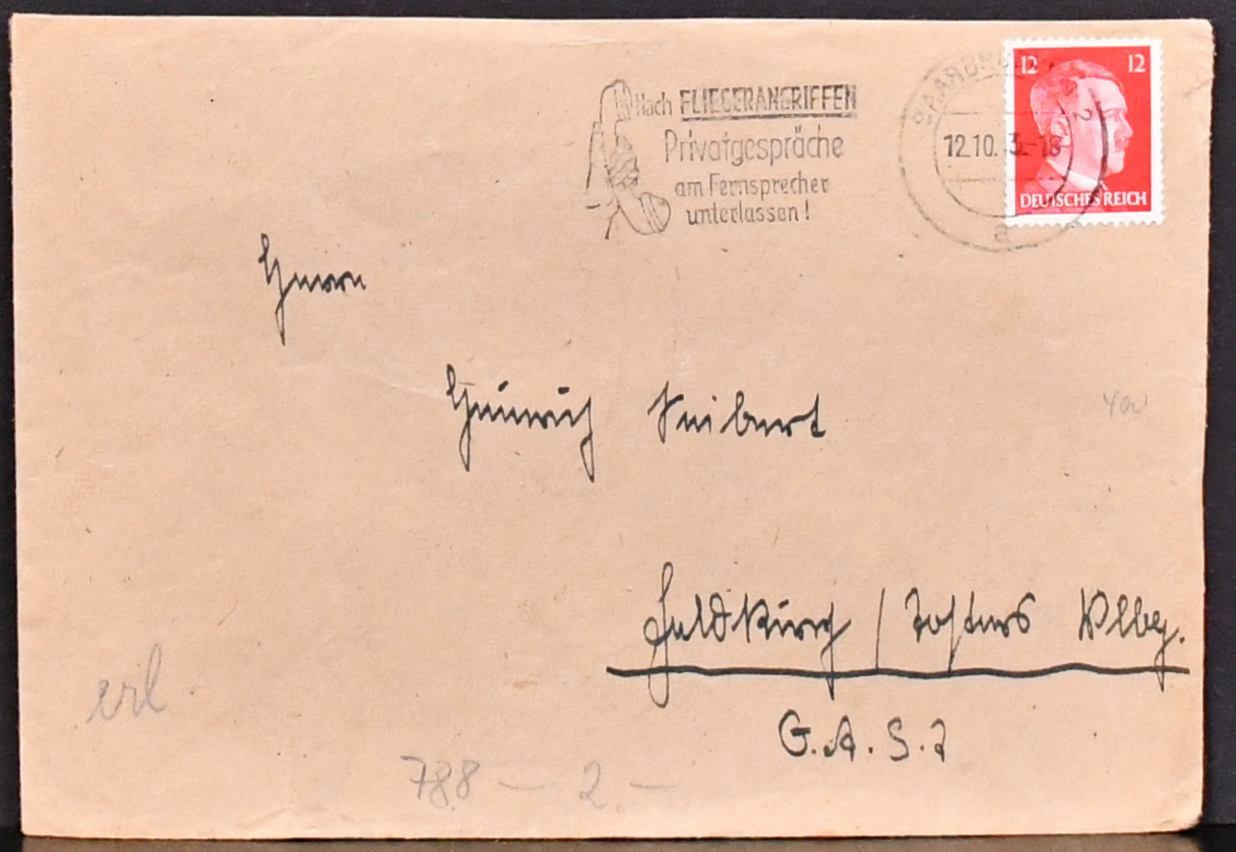 Nach FLIEGERANGRIFFEN
Privatgespräche
am Fernsprecher
unterlassen!
SAARBRÜ 2
12.10. 3.-18
a
12 12
DEUTSCHES REICH
Herrn
Heinrich Seibert
Feldkirch / Tosters Vlbg.
G.A.S.7
erl
788 — 2.—